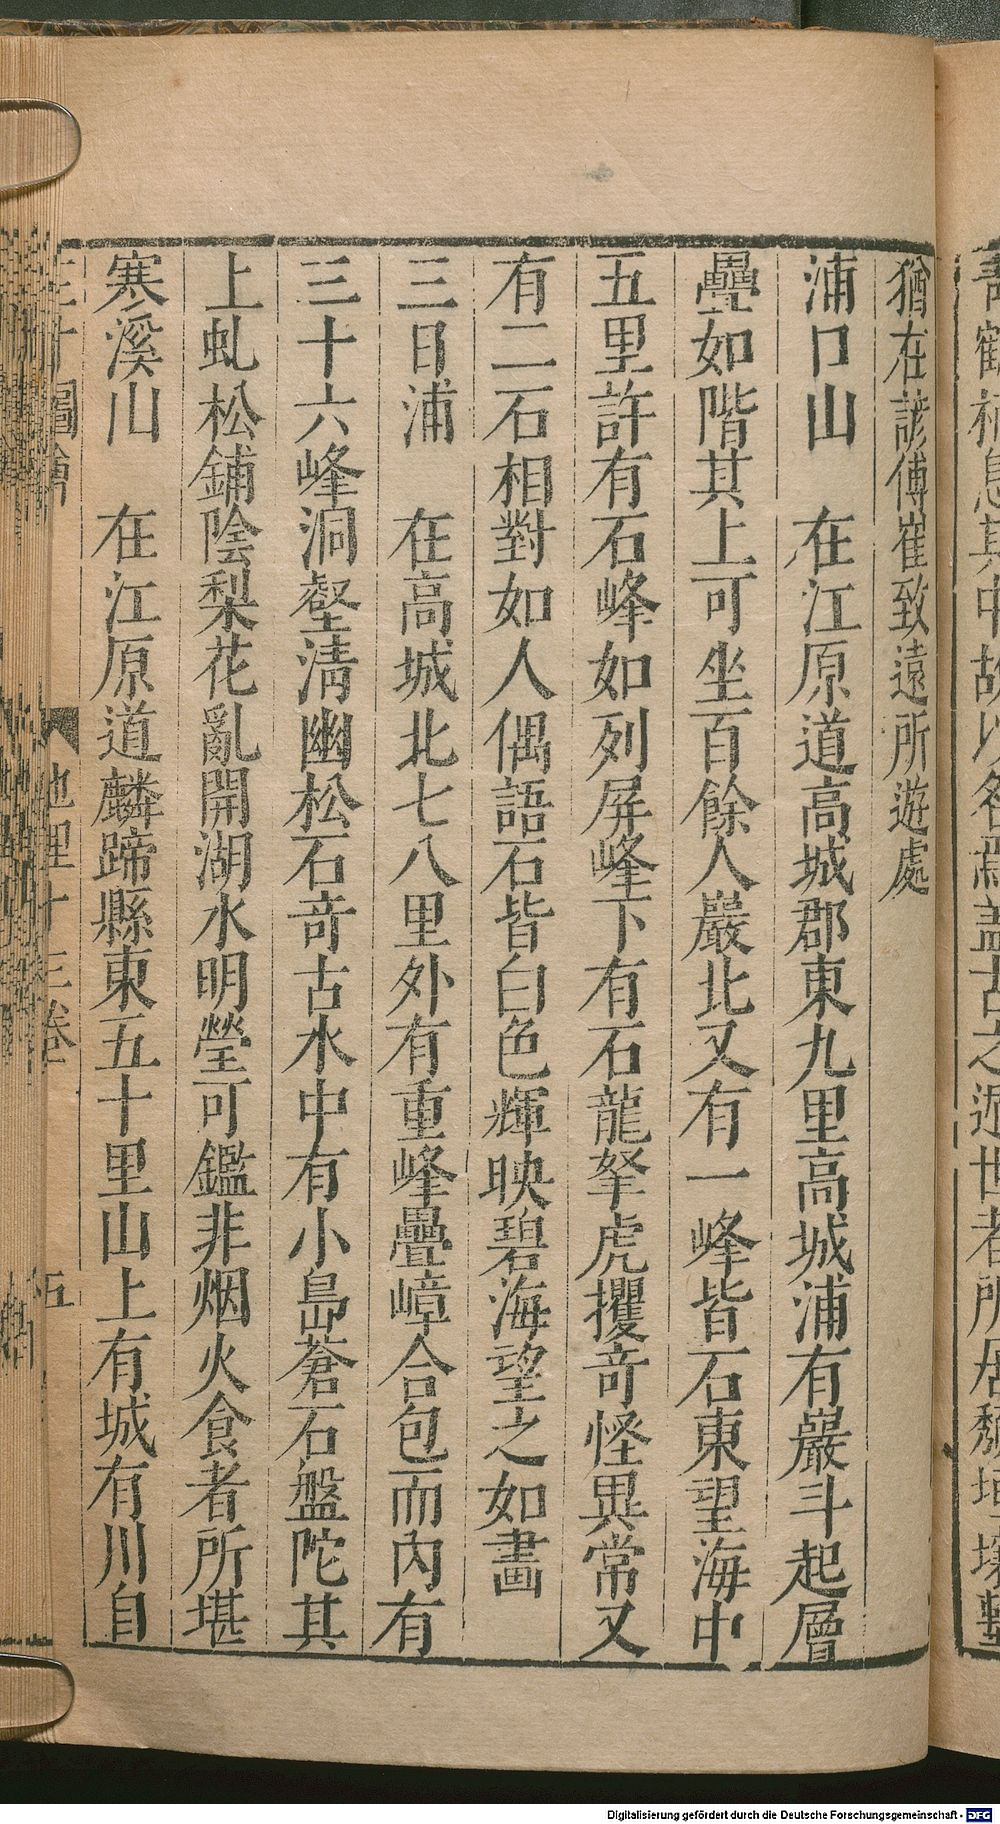 猶在諺傅崔致遠所遊處
浦口山　在江原道高城郡東九里高城浦有巖斗起層
疊如階其上可坐百餘人巖北又有一峰皆石東望海中
五里許有石峰如列屏峰下有石龍拏虎攫奇怪異常又
有二石相對如人偶語石皆白色輝映碧海望之如畵
三日浦　在高城北七八里外有重峰疊嶂合包而內有
三十六峰洞壑淸幽松石奇古水中有小島蒼石盤陀其
上虬松鋪陰梨花亂開湖水明瑩可鑑非烟火食者所堪
寒溪山　在江原道麟蹄縣東五十里山上有城有川自
地理十三卷
五
Digitalisierung gefördert durch die Deutsche Forschungsgemeinschaft - DFG